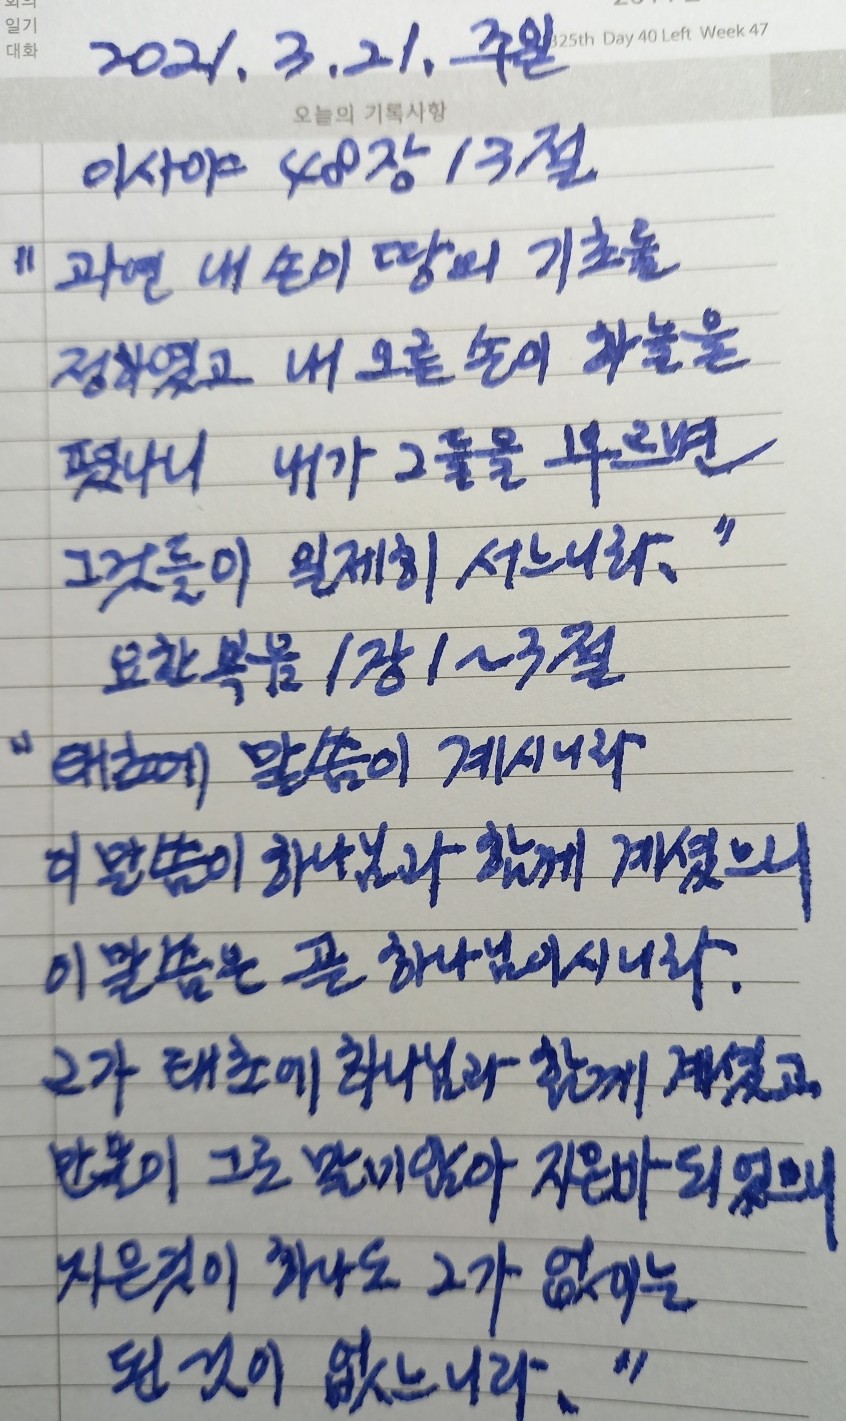 회의
일기
대화
325th Day 40 Left Week 47
2021. 3. 21. 주일
오늘의 기록사항
이사야 48장 13절
" 과연 내 손이 땅의 기초를
정하였고 내 오른 손이 하늘을
폈나니 내가 그들을 부르면
그것들이 일제히 서느니라. "
요한복음 1장 1~3절
" 태초에 말씀이 계시니라
이 말씀이 하나님과 함께 계셨으니
이 말씀은 곧 하나님이시니라.
그가 태초에 하나님과 함께 계셨고
만물이 그로 말미암아 지은바 되었으니
지은것이 하나도 그가 없이는
된 것이 없느니라. "